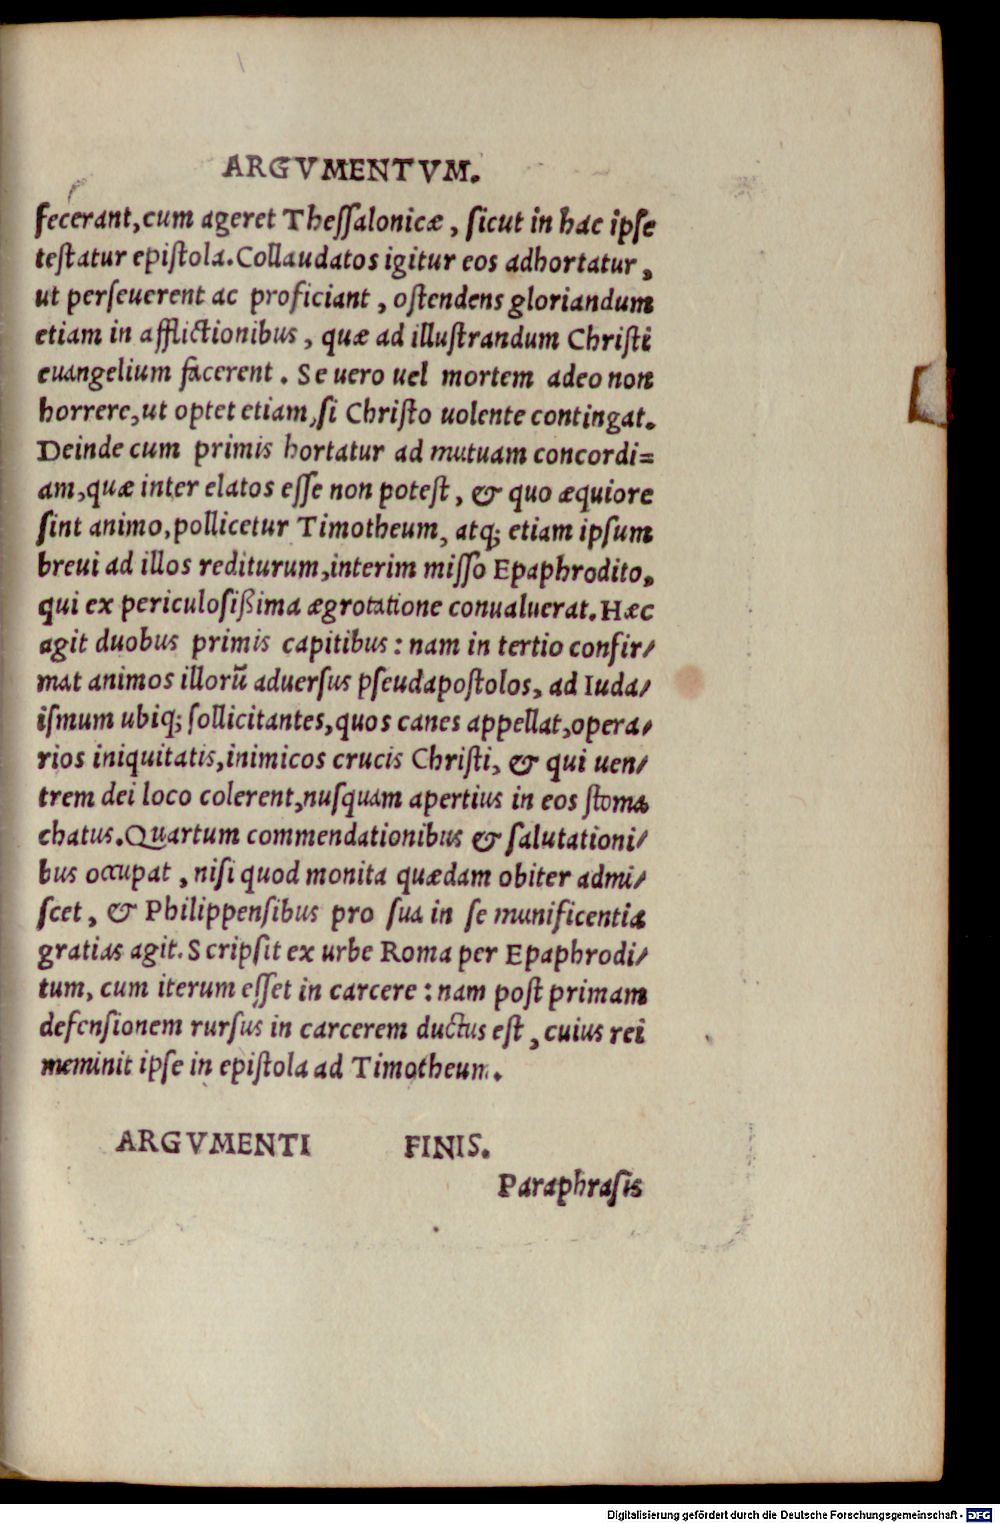 ARGVMENTVM.
fecerant,cum ageret Thessalonicæ, sicut in hac ipse
testatur epistola.Collaudatos igitur eos adhortatur,
ut perseuerent ac proficiant, ostendens gloriandum
etiam in afflictionibus, quæ ad illustrandum Christi
euangelium facerent. Se uero uel mortem adeo non
horrere,ut optet etiam,si Christo uolente contingat.
Deinde cum primis hortatur ad mutuam concordi=
am,quæ inter elatos esse non potest, & quo æquiore
sint animo,pollicetur Timotheum, atq; etiam ipsum
breui ad illos rediturum,interim misso Epaphrodito,
qui ex periculosißima ægrotatione conualuerat.Hæc
agit duobus primis capitibus: nam in tertio confir/
mat animos illorū aduersus pseudapostolos, ad Iuda/
ismum ubiq; sollicitantes,quos canes appellat,opera/
rios iniquitatis,inimicos crucis Christi, & qui uen/
trem dei loco colerent,nusquam apertius in eos stoma
chatus.Quartum commendationibus & salutationi/
bus occupat, nisi quod monita quædam obiter admi/
scet, & Philippensibus pro sua in se munificentia
gratias agit. Scripsit ex urbe Roma per Epaphrodi/
tum, cum iterum esset in carcere: nam post primam
defensionem rursus in carcerem ductus est, cuius rei
meminit ipse in epistola ad Timotheum.
ARGVMENTI FINIS.
Paraphrasis
Digitalisierung gefördert durch die Deutsche Forschungsgemeinschaft - DFG